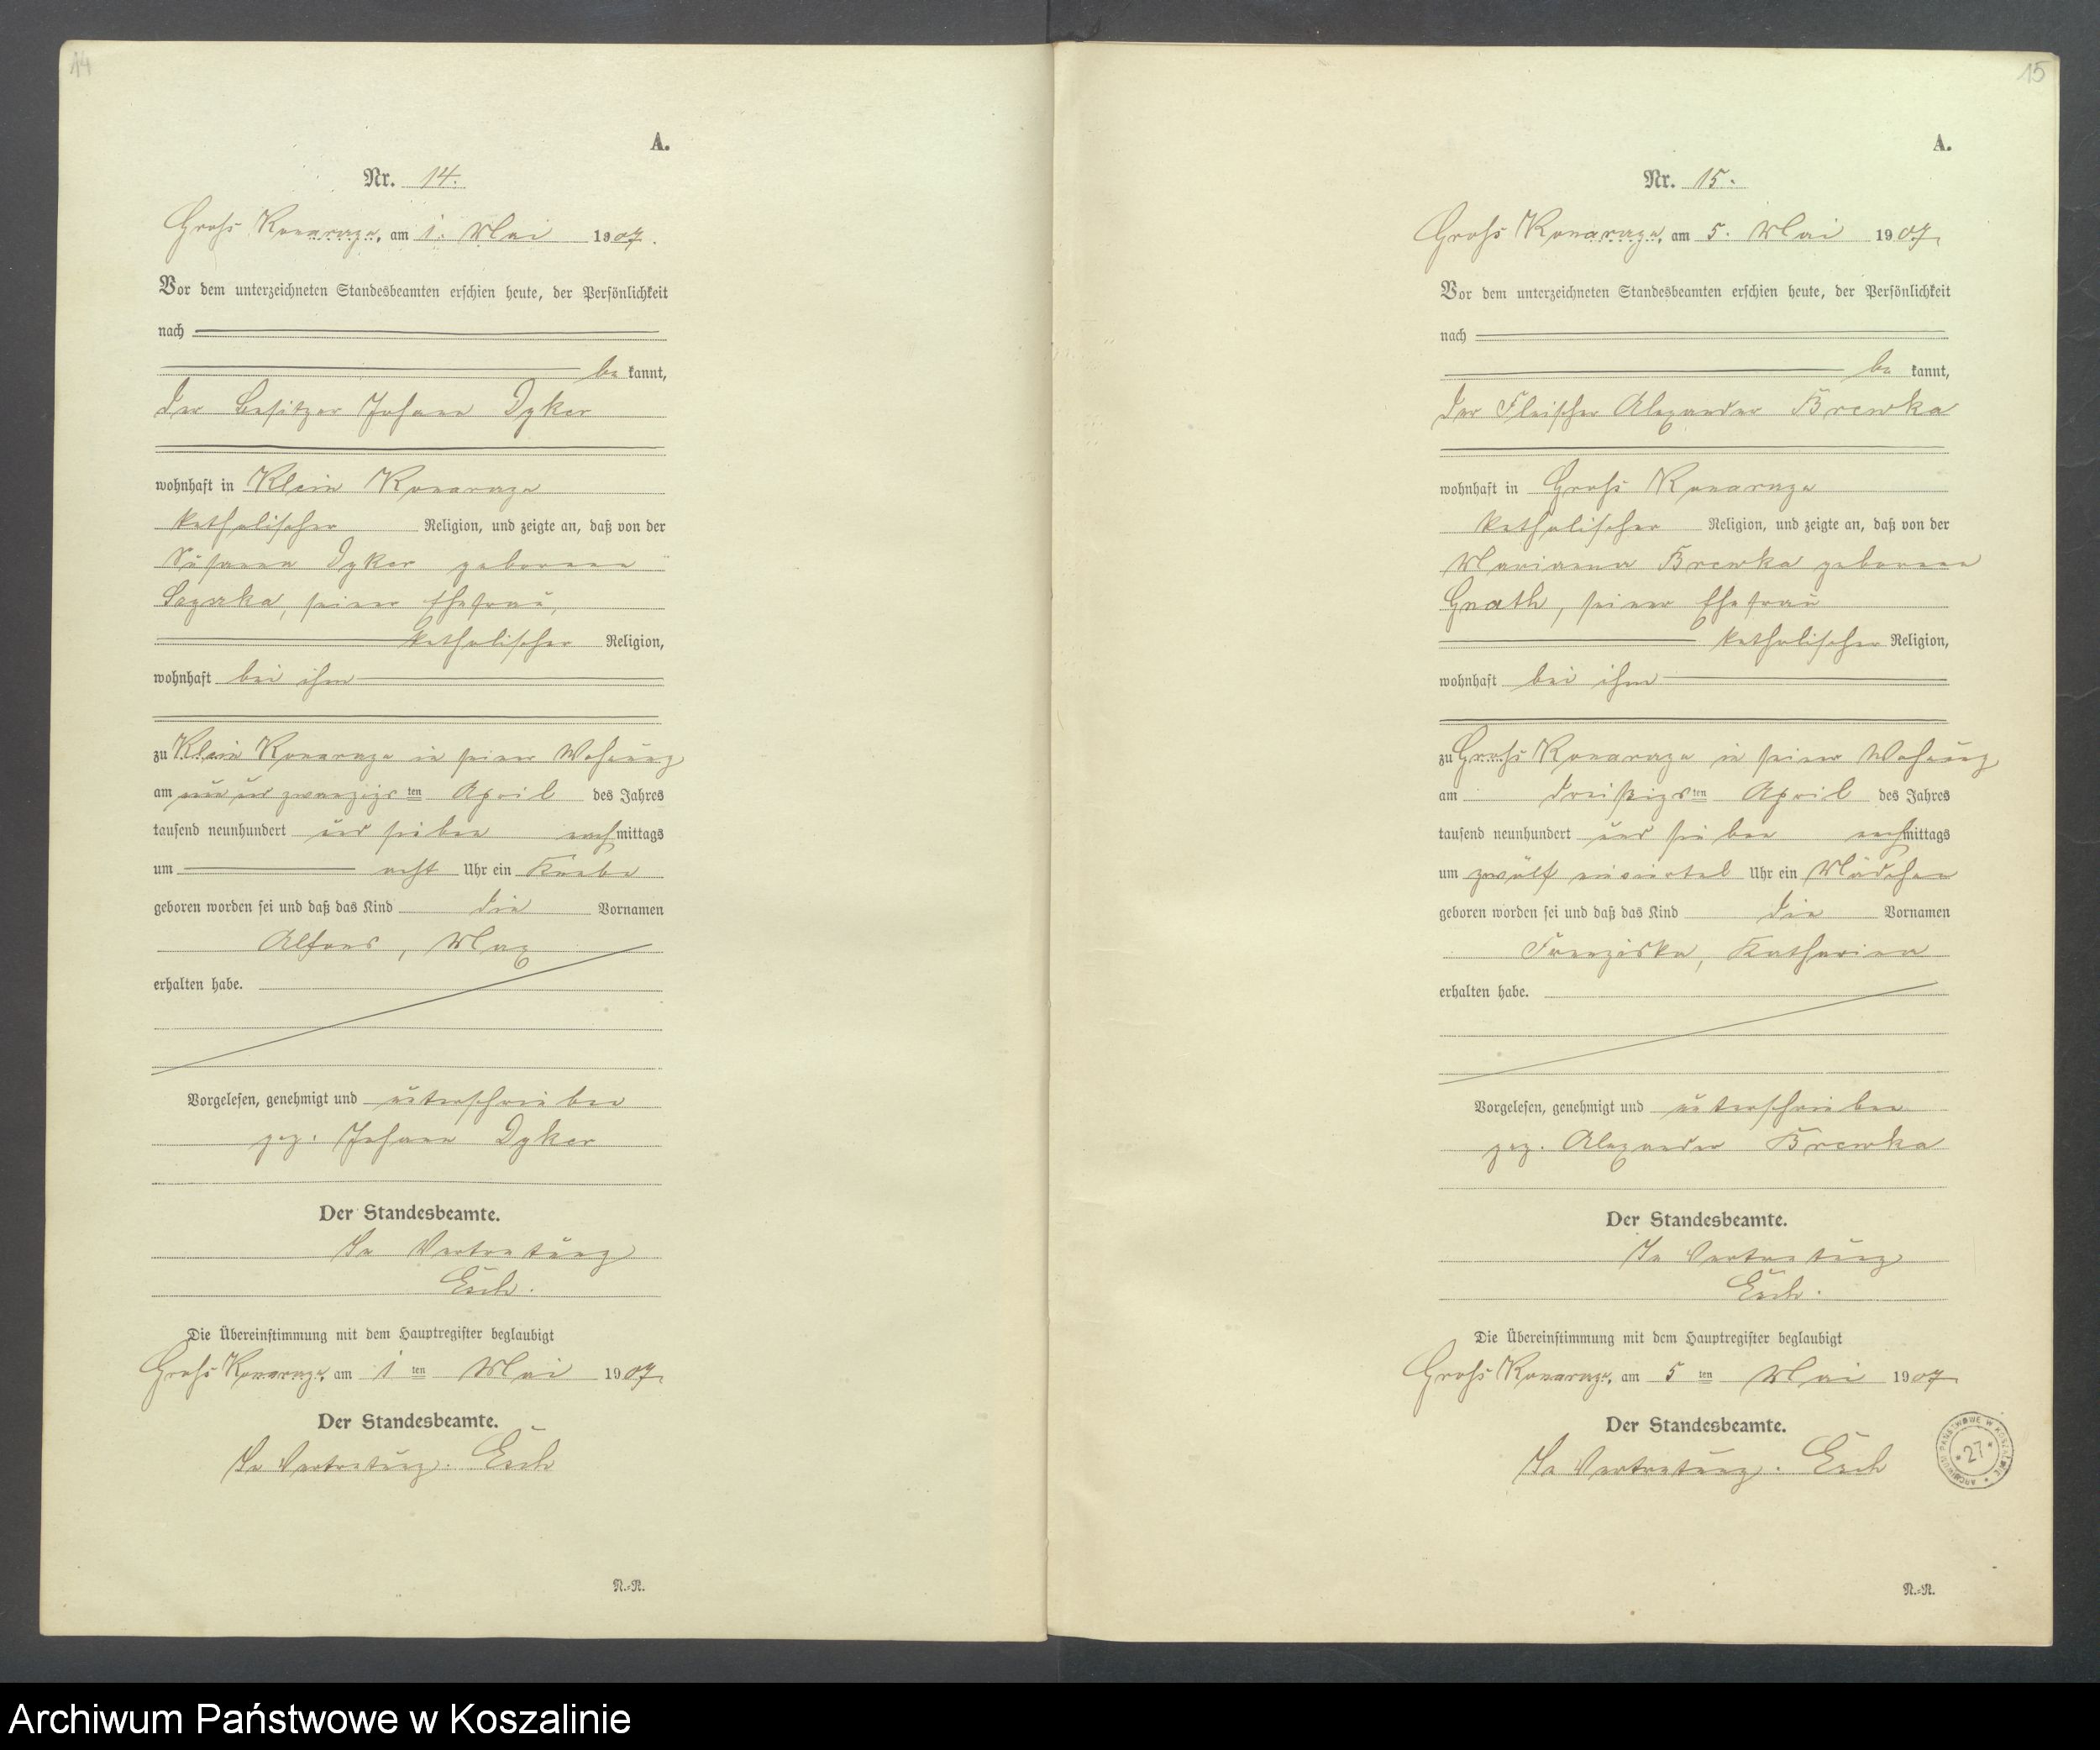 14
A.
Nr. 14.
Groß Konarczyn, am 1. Mai 1907.
Vor dem unterzeichneten Standesbeamten erschien heute, der Persönlichkeit
nach
be kannt,
der Besitzer Johann Dyker
wohnhaft in Klein Konarczyn
katholischer Religion, und zeigte an, daß von der
Susanna Dyker geborenen
seiner Ehefrau,
katholischer Religion,
wohnhaft bei ihm
zu Klein Konarczyn in seiner Wohnung
am neun und zwanzigsten April des Jahres
tausend neunhundert und sieben nachmittags
um acht Uhr ein Knabe
geboren worden sei und daß das Kind die Vornamen
Alfons, Max
erhalten habe.
Vorgelesen, genehmigt und unterschrieben
gez. Johann Dyker
Der Standesbeamte.
In Vertretung
Esch.
Die Übereinstimmung mit dem Hauptregister beglaubigt
Groß Konarczyn, am 1 ten Mai 1907.
Der Standesbeamte.
In Vertretung. Esch
N.=R.
15
A.
Nr. 15.
Groß Konarczyn, am 5. Mai 1907.
Vor dem unterzeichneten Standesbeamten erschien heute, der Persönlichkeit
nach
be kannt,
der Fleischer Alexander Brewka
wohnhaft in Groß Konarczyn
katholischer Religion, und zeigte an, daß von der
Marianna Brewka geborenen
Gnath, seiner Ehefrau
katholischer Religion,
wohnhaft bei ihm
zu Groß Konarczyn in seiner Wohnung
am dreißigsten April des Jahres
tausend neunhundert und sieben nachmittags
um zwölf einviertel Uhr ein Mädchen
geboren worden sei und daß das Kind die Vornamen
Franziska, Katharina
erhalten habe.
Vorgelesen, genehmigt und unterschrieben
gez. Alexander Brewka
Der Standesbeamte.
In Vertretung
Esch.
Die Übereinstimmung mit dem Hauptregister beglaubigt
Groß Konarczyn, am 5 ten Mai 1907.
Der Standesbeamte.
In Vertretung. Esch
ARCHIWUM PAŃSTWOWE W KOSZALINIE
* 27 *
N.=R.
Archiwum Państwowe w Koszalinie